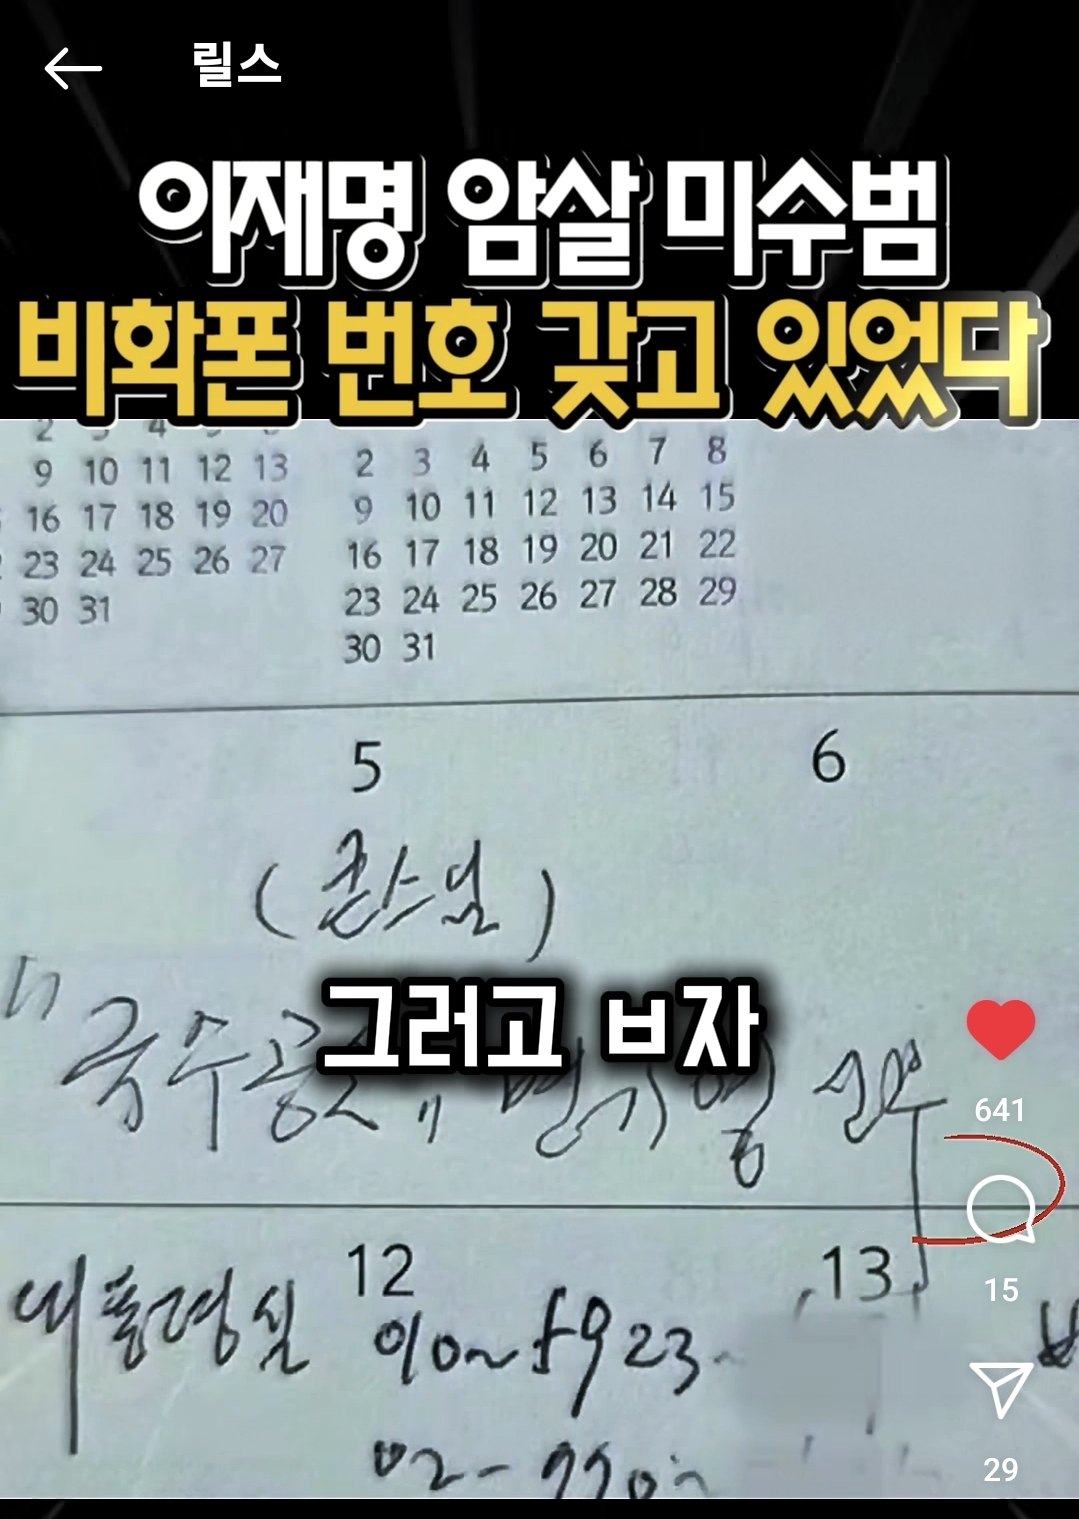 릴스
이재명 암살 미수범
비화폰 번호 갖고 있었다
2 3 4 5 6 7 8
9 10 11 12 13 9 10 11 12 13 14 15
16 17 18 19 20 16 17 18 19 20 21 22
23 24 25 26 27 23 24 25 26 27 28 29
30 31 30 31
5 6
그러고 ㅂ자
641
12 13
대통령실 010~5923-
15
02-770
29